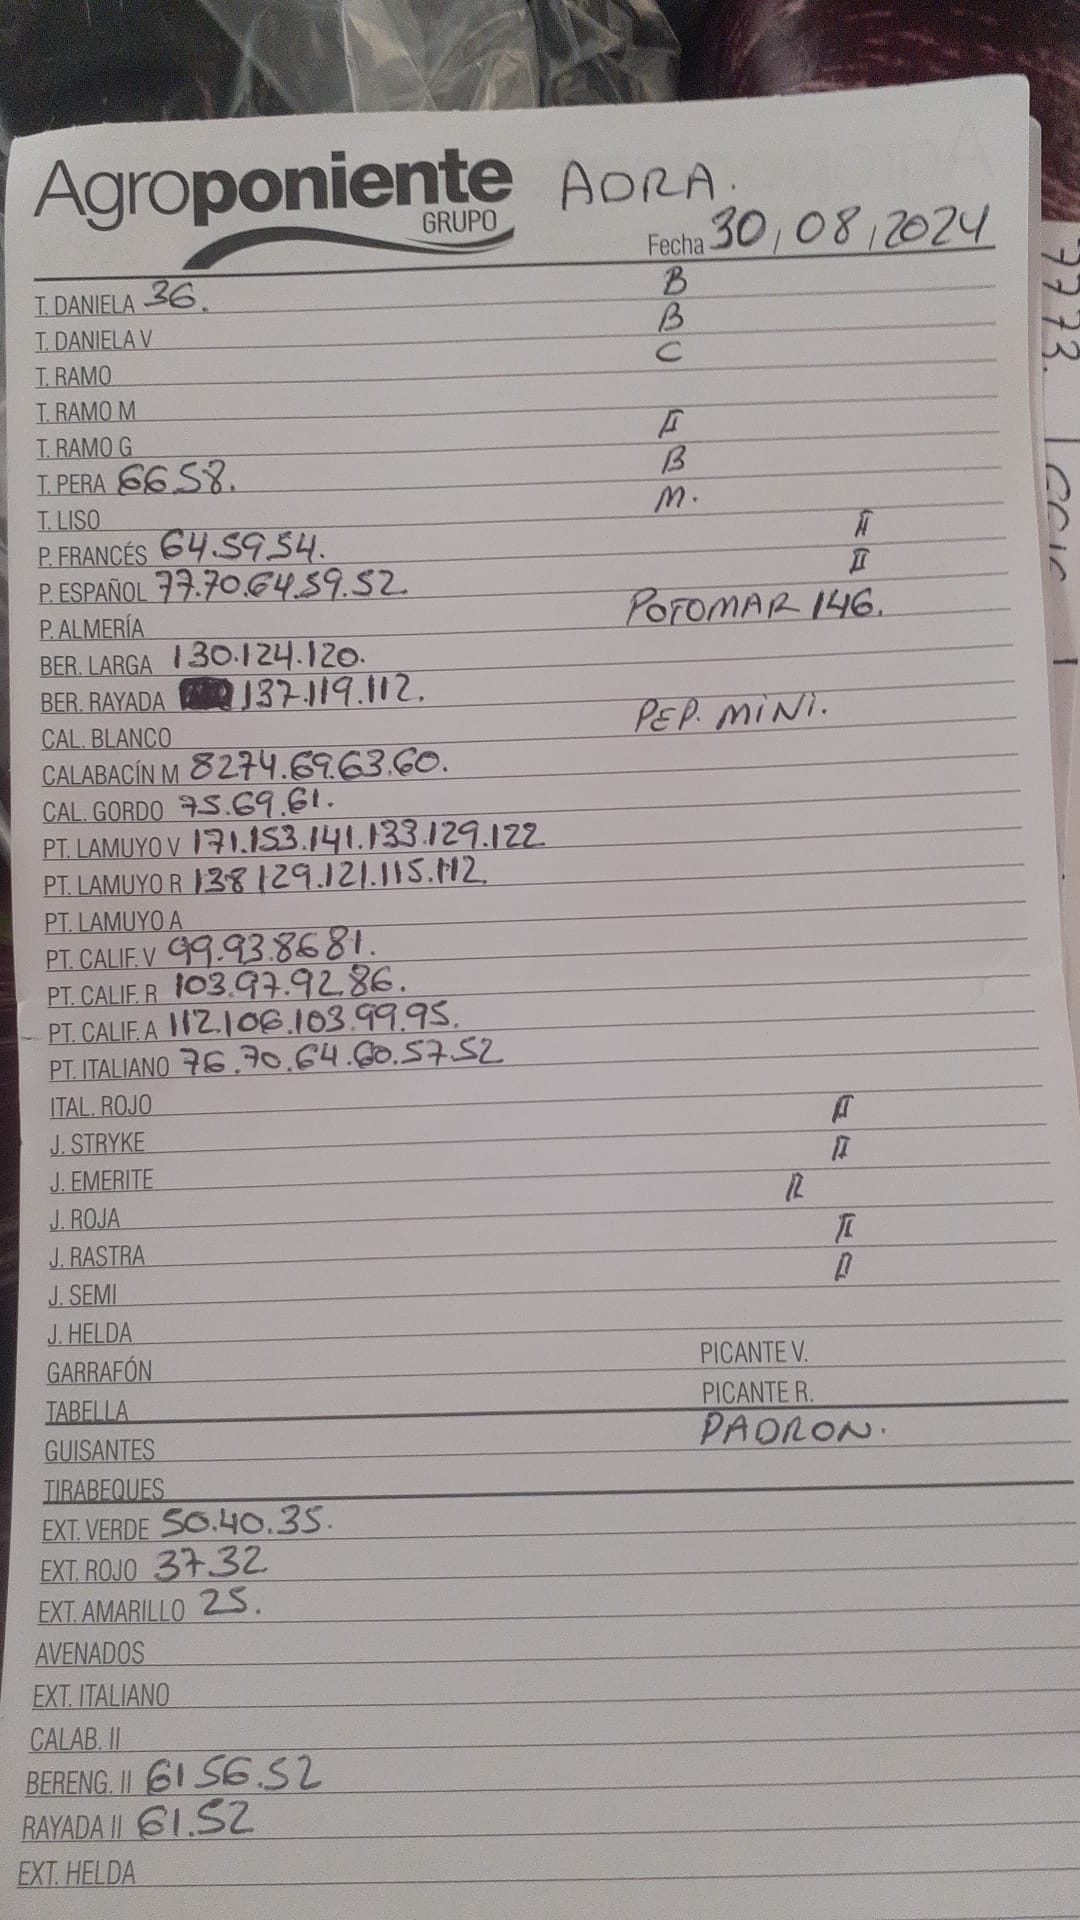 Agroponiente ADRA.
GRUPO
Fecha 30,08,2024
T. DANIELA 36. B
T. DANIELA V B
T. RAMO C
T. RAMO M
T. RAMO G II
T. PERA 66 58. B
T. LISO M.
P. FRANCÉS 64.59.54. II
P. ESPAÑOL 77.70.64.59.52. II
P. ALMERÍA POTOMAR 146.
BER. LARGA 130.124.120.
BER. RAYADA 137.119.112.
CAL. BLANCO PEP. MINI.
CALABACÍN M 82 74.69.63.60.
CAL. GORDO 75.69.61.
PT. LAMUYO V 171.153.141.133.129.122
PT. LAMUYO R 138 129.121.115.112.
PT. LAMUYO A
PT. CALIF. V 99.93.86 81.
PT. CALIF. R 103.97.92.86.
PT. CALIF. A 112.106.103.99.95.
PT. ITALIANO 76.70.64.60.57.52
ITAL. ROJO II
J. STRYKE II
J. EMERITE R
J. ROJA II
J. RASTRA
J. SEMI
J. HELDA
GARRAFÓN PICANTE V.
TABELLA PICANTE R.
GUISANTES PADRON.
TIRABEQUES
EXT. VERDE 50.40.35.
EXT. ROJO 37.32
EXT. AMARILLO 25.
AVENADOS
EXT. ITALIANO
CALAB. II
BERENG. II 61 56.52
RAYADA II 61.52
EXT. HELDA
7773.